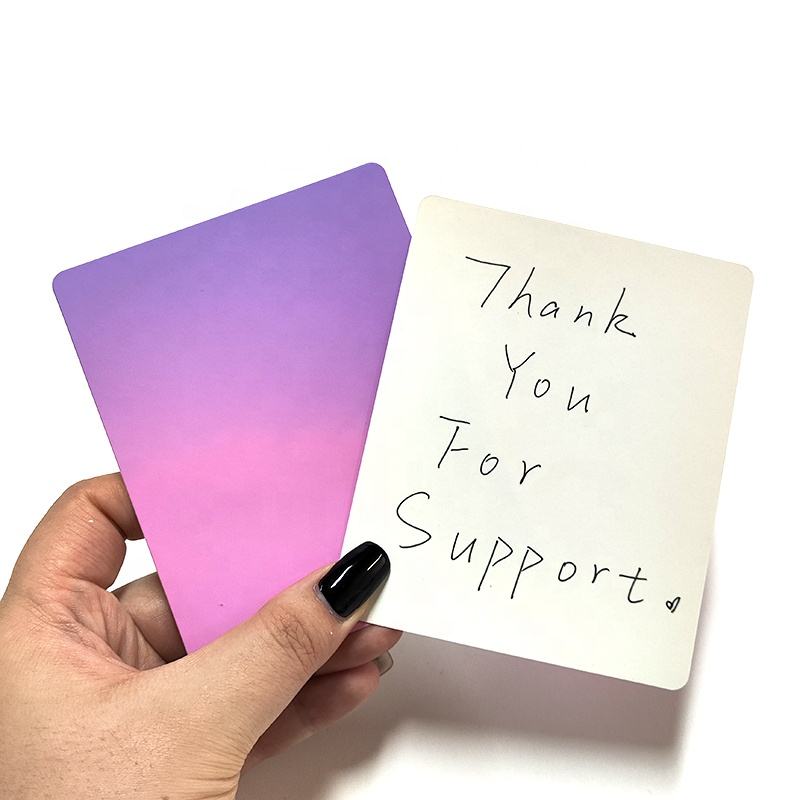 Thank
You
For
Support.